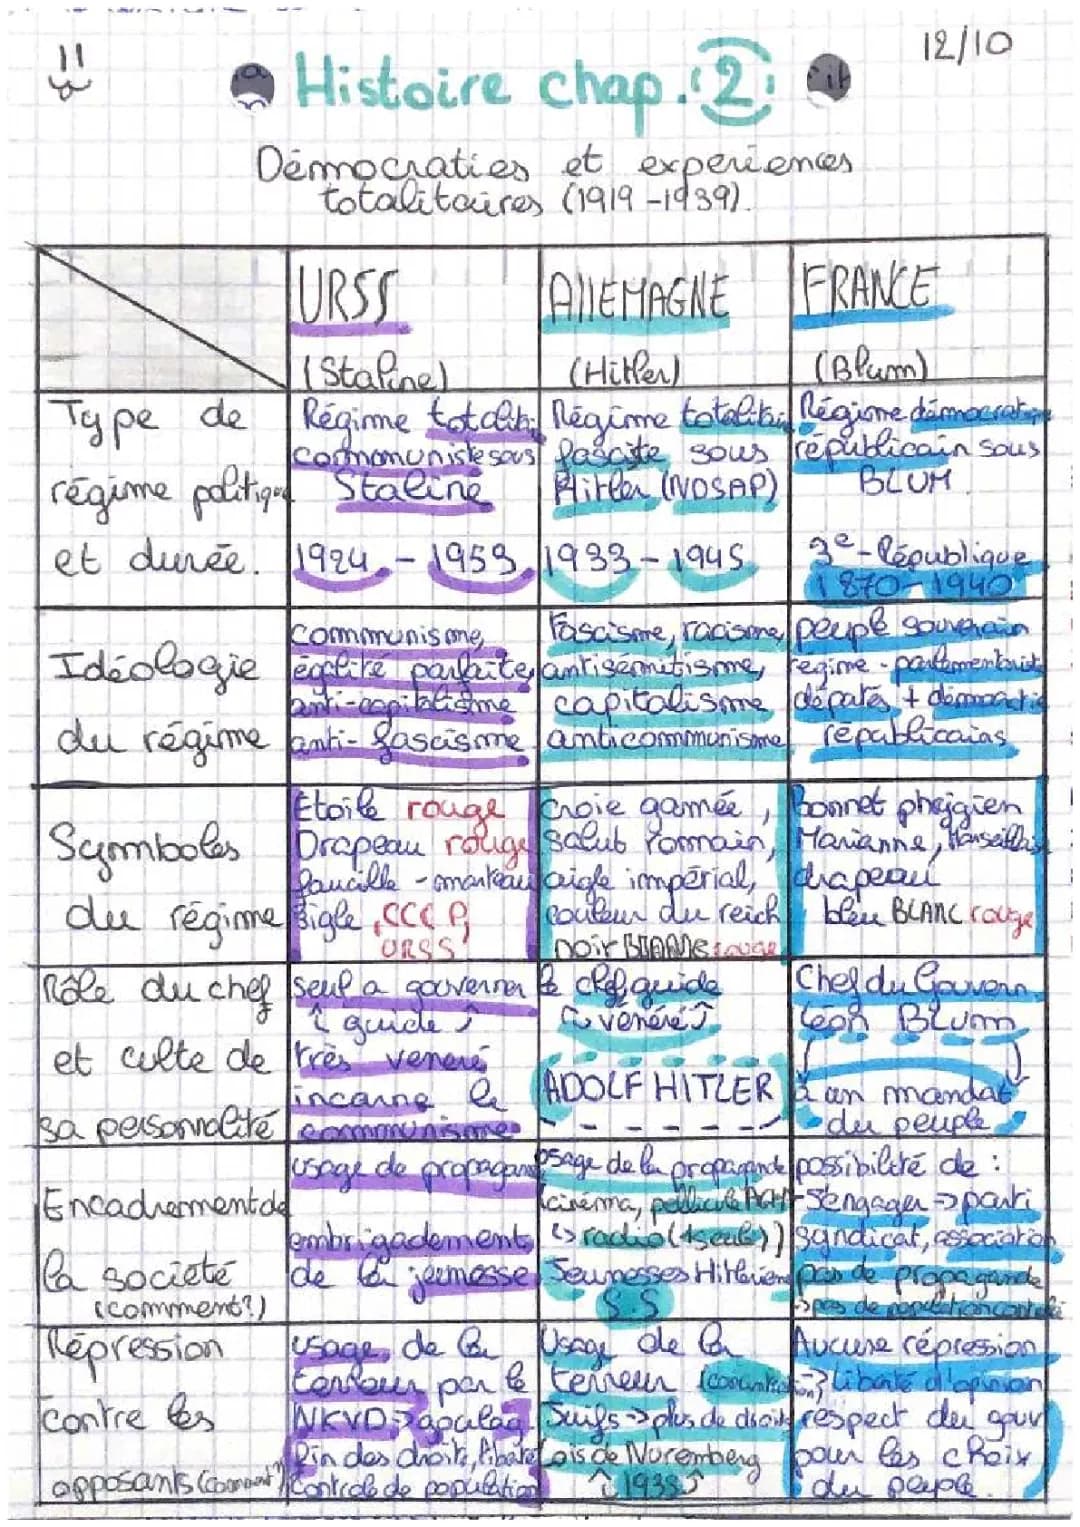 12/10
Histoire chap. 2
Démocraties et experiences
totalitaires (1919-1939).
URSS
(Staline)
AllEMAGNE
(Hitler)
FRANCE
(Blum)
Type de
régime politique
et durée.
Régime totalit
communiste sous
Staline
1924 - 1953
Régime totalitair
fasciste sous
Hitler (NDSAP)
1933 - 1945
Régime démocratique
républicain sous
BLUM
3e - République
1870 - 1940
Idéologie
du régime
communisme,
égalité parfaite,
anti-capitalisme
anti-fascisme
Fascisme, racisme,
antisémitisme,
capitalisme
anticommunisme
peuple souverain
régime - parlementariste
députés + démocratie
républicains
Symboles
du régime
Etoile rouge
Drapeau rouge
faucille - marteau
sigle, CCCP,
URSS
Croie gamée,
salut romain,
aigle impérial,
couleur du reich
noir BLANC rouge
bonnet phrygien
Marianne, Marseillaise
drapeau
bleu BLANC rouge
Rôle du chef
et culte de
sa personnalité
seul a gouverner
guide
très veneré
incarne le
communisme
le chef, guide
vénéré
ADOLF HITLER
Chef du Gouvern.
Léon Blum
à un mandat
du peuple
Encadrement de
la société
(comment?)
usage de propagande
embrigadement
de la jeunesse
usage de la propagande
(cinéma, pellicule
↳ radio (1 seule))
Jeunesses Hitlerienne
S.S
possibilité de :
- S'engager → parti
syndicat, association
pas de propagande
→ pas de population controlé
Répression
contre les
opposants (comment?)
usage de la
terreur par le
NKVD → goulag
fin des droits, liberté
controle de population
Usage de la
terreur
Juifs → plus de droits
Lois de Nuremberg
1935
Aucune répression
→ liberté d'opinion
respect du gouv
pour les choix
du peuple.